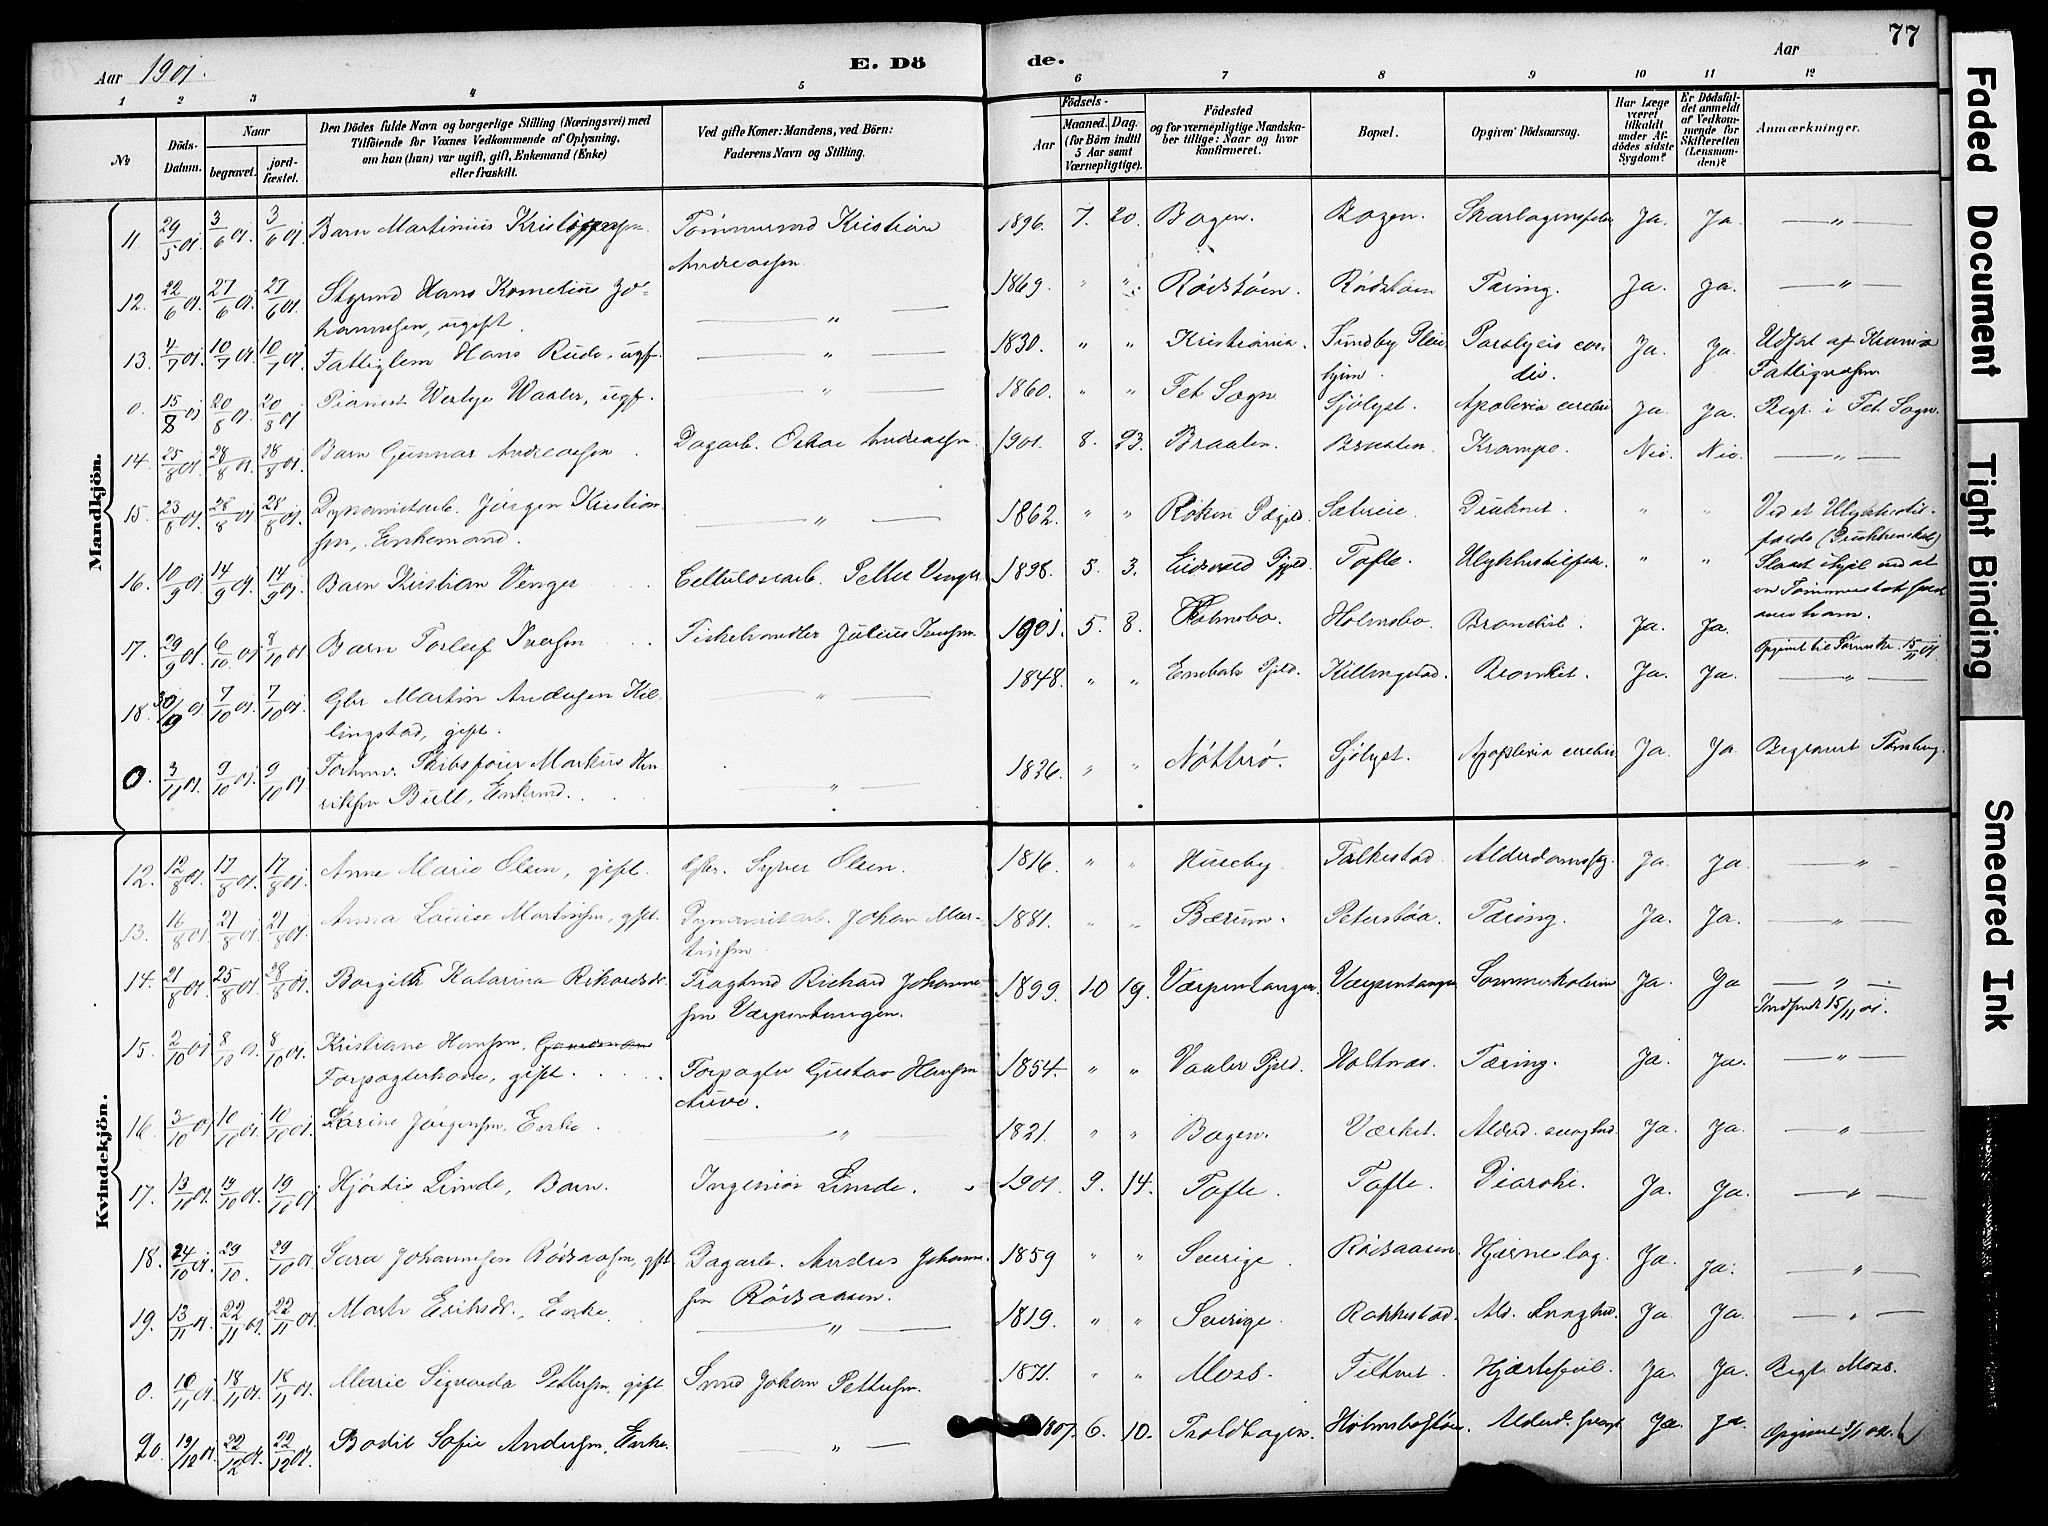 77
Aar 1901. E. Dö de. Aar
1 2 3 4 5 6 7 8 9 10 11 12
No
Döds-Datum.
Naar
begravet. jordfæstet.
Den Dödes fulde Navn og borgerlige Stilling (Næringsvei) med
Tilföiende for Voxnes Vedkommende af Oplysning,
om han (hun) var ugift, gift, Enkemand (Enke)
eller fraskilt.
Ved gifte Koner: Mandens, ved Börn:
Faderens Navn og Stilling.
Födsels-
Aar
Maaned. Dag.
(for Börn indtil
5 Aar samt
Værnepligtige).
Födested
og for værnepligtige Mandskaber tillige: Naar og hvor
konfirmeret.
Bopæl.
Opgiven Dödsaarsag.
Har Læge
været
tilkaldt
under Afdödes sidste
Sygdom?
Er Dödsfaldet anmeldt
af Vedkommende for
Skifteretten
(Lensmanden)?
Anmærkninger.
Mandkjön.
11. 29/5 01. 3/6 01. 3/6 01 Barn Martinius Tømmermd Kristian 1896. 7. 20. Bogen. Bogen. Ja. Ja. — " —
Andreassen
12. 22/6 01. 27/6 01. 27/6 01. Styrmd Hans Kornelius Jo- — " — 1869. " " Rødstøen. Rødstøen Tæring. Ja. Ja. — " —
hannesen, ugift.
13. 4/7 01. 10/7 01. 10/7 01. Fattiglem Hans Rude, ugf. — " — 1830. " " Kristiania. Sundby Plei- Paralyeis cor- Ja. Ja. Udsat af Krania
hjem. dis. Fattigvæsen
0. 15/8 01 20/8 01. 20/8 01. Pianist Waaler, ugf. — " — 1860. " " Fet Sogn Sjölyst. Apoplexia cerebri Ja. Ja. Begr. i Fet Sogn.
14. 25/8 01. 28/8 01. 28/8 01. Barn Gunnar Andreassen Dagarb. Oskar Andreassen. 1901. 8. 23. Braaten. Braaten. Krampe. Nei. Nei. — " —
15. 23/8 01. 28/8 01. 28/8 01. Dynamitarb. Jörgen Kristian- — " — 1862. " " Røken Pægjld. Sætreie. Druknet. " " Ved et Ulykkestil-
sen, Enkemand. fælde
16. 10/9 01. 14/9 01. 14/9 01. Barn Kristian Venger Cellulosearb. Petter Venger 1898. 5. 3. Eidsvold Pgjld. Tofte. Ulykkestilfæl. " " Slaaet ihjel ved at
en Tømmerstok faldt
over ham.
17. 29/9 01. 6/10 01 8/10 01. Barn Torleif Iversen Fiskehandler Julius Iversen. 1901. 5. 8. Holmsbo. Holmsbo. Bronckit. Ja. Ja. Opgivet til 15/11 01.
18. 30/9 01 7/10 01. 7/10 01. Gbr Martin Andersen Kil- — " — 1848. " " Enebak Pjld. Killingstad. Bronkit. Ja. Ja. — " —
lingstad, gift.
0. 3/11 01. 9/10 01. 9/10 01. Forhenv. Skibsfører Markus Hen- — " — 1826. " " Nøtterø. Sjölyst. Apoplexia cerebri Ja. Ja. Begravet Tønsberg.
riksen Bull, Enkemd.
Kvindekjön.
12. 12/8 01. 17/8 01. 17/8 01. Anne Marie Olsen, gift. Syver Olsen. 1816. " " Huseby. Folkestad. Ja. Ja. "
13. 16/8 01. 21/8 01. 21/8 01. Anna Louise Martinsen, gft. Dynamitarb. Johan Mar- 1881. " " Bærum. Peterstøa. Tæring. Ja. Ja. — " —
tinsen.
14. 21/8 01. 25/8 01. 28/8 01. Borgith Katarina Rikardsdr. Richard Johanne- 1899. 10 19. Værpentangen. Værpentangen Sommerkolerin Ja. Ja — " —
sen Værpentangen. Indsendt 15/11 01.
15. 2/10 01 8/10 01. 8/10 01. Kristiane Hansen, Forpagter Gustav Hansen 1854. " " Vaaler Pjld. Holtnæs. Tæring. Ja. Ja. — " —
Forpagterkone, gift.
16. 3/10 01 10/10 01. 10/10 01. Karine Jörgensen, Enke. " 1821. " " Bogen. Værket. Alderd. svaghed. Ja. Ja. — " —
17. 13/10 01. 19/10 01. 19/10 01. Hjördis Linde, Barn. Ingeniör Linde. 1901. 9. 14. Tofte. Tofte. Diarohe. Ja. Ja. — " —
18. 24/10 01. 29/10. 29/10 01. Sara Johannesen Rødsaasen, gft. Dagarb. Andres Johanne- 1859 " " Sverige. Rødsaasen. Hjerneslag. Ja. Ja. — " —
sen Rødsaasen.
19. 13/11 01. 22/11 01. 22/11 01. Marte Eriksdr., Enke. — " — 1819. " " Sverige. Rakkestad. Ald. Svaghed. Ja. Ja. — " —
0. 10/11 01. 18/11 01. 18/11 01. Marie Sigvarda Pettersen, gift Smed Johan Pettersen. 1871. " " Moss. Filtvet. Hjærtefeil. Ja. Ja. Begr. Moss.
20. 19/12 01. 22/12 01. 22/12 01. Bodil Sofie Andersen, Enke. — " — 1807. 6. 10. Troldbogen. Holmsbostøen. Alderd. svagh. Ja. Ja. Opgivet 3/1 02.
Faded Document
Tight Binding
Smeared Ink